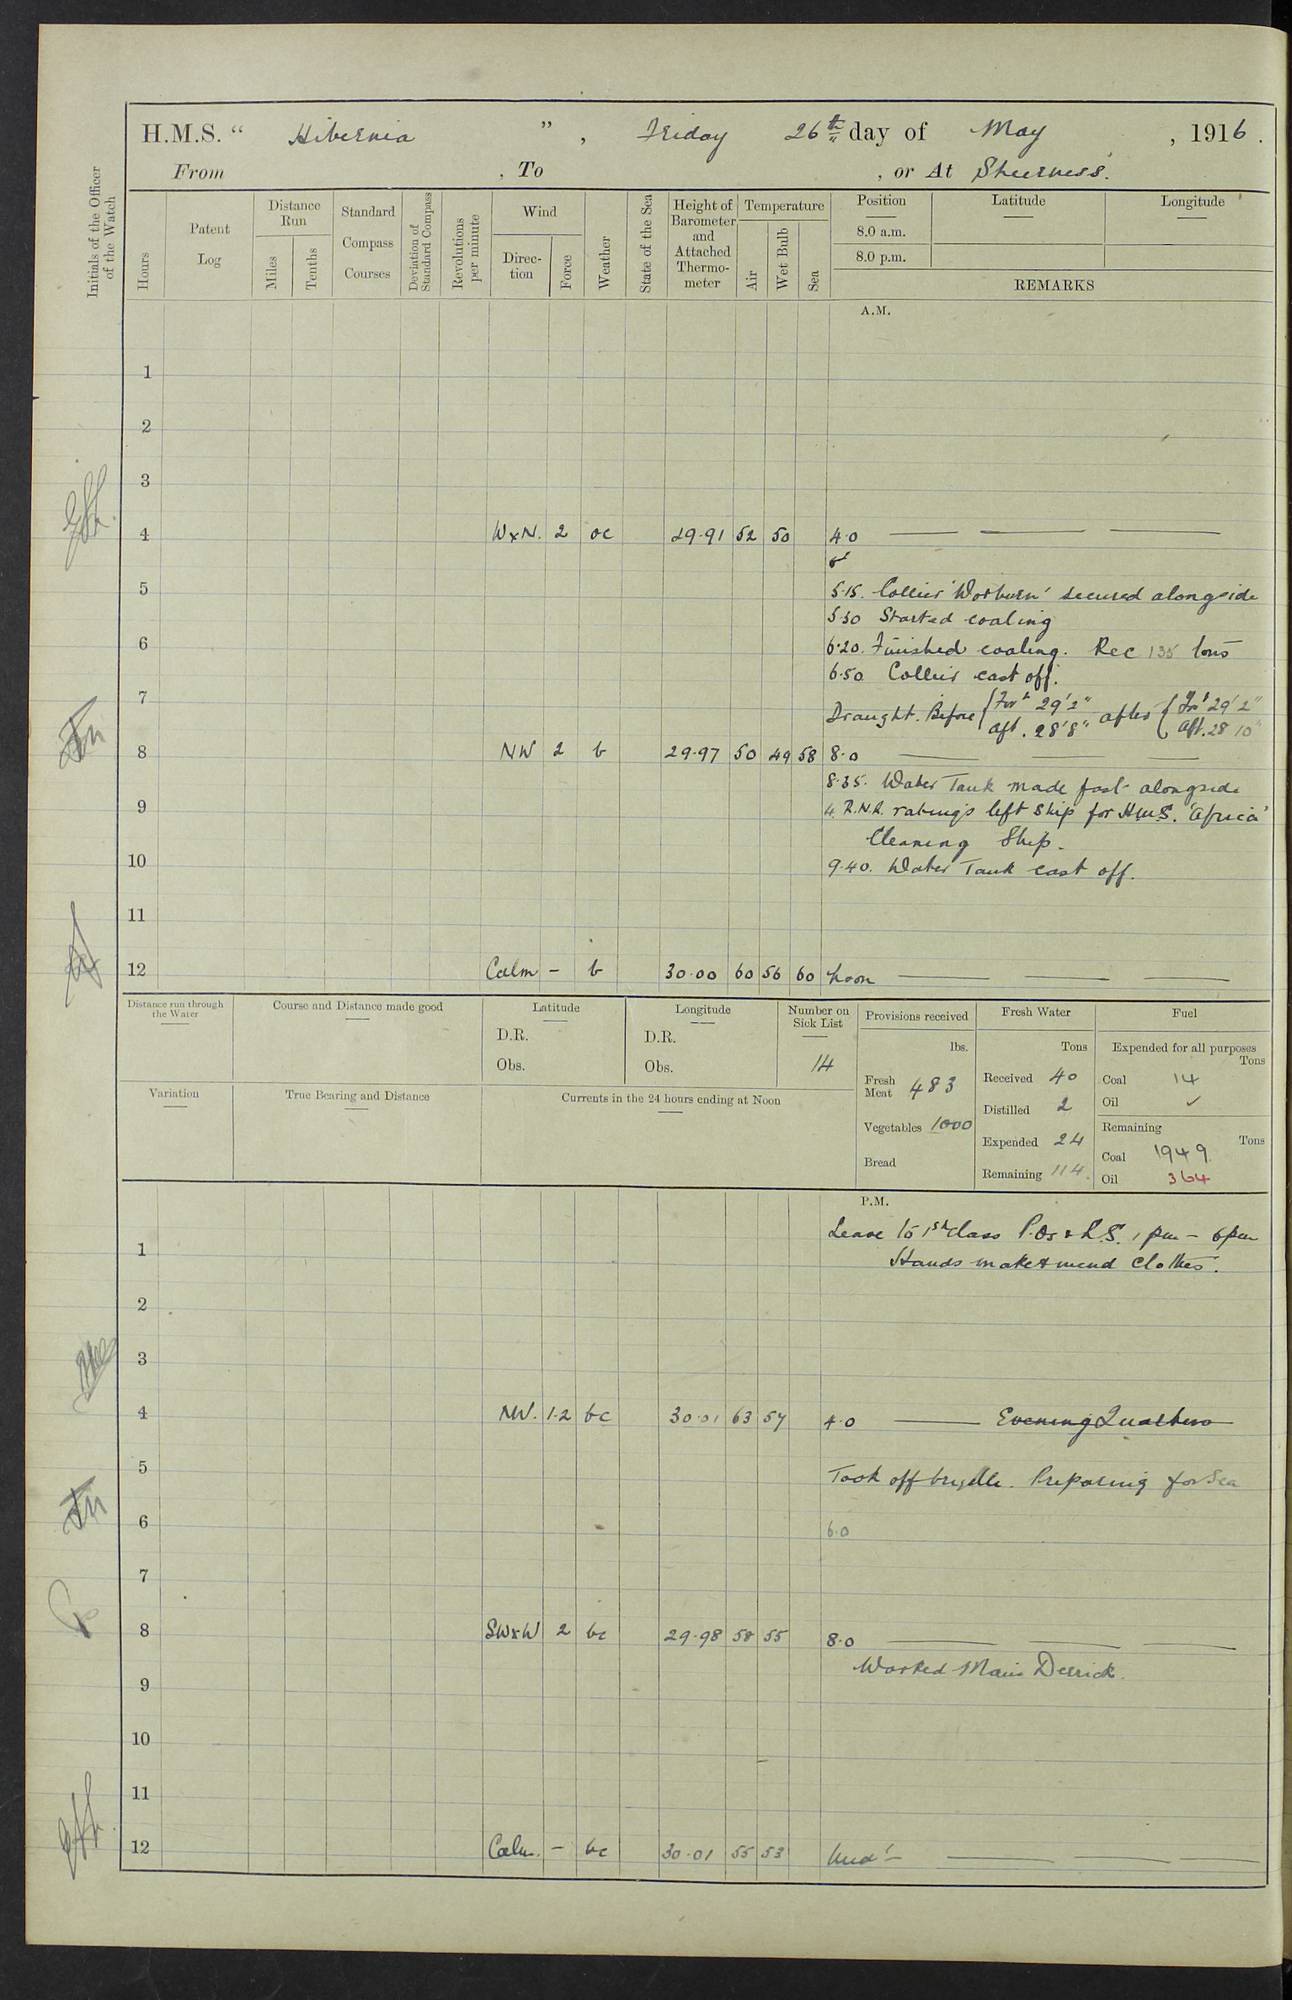 H.M.S. " Hibernia " , Friday 26th day of May , 1916.
From , To , or At Sheerness.
Initials of the Officer of the Watch
Hours
Patent Log
Distance Run
Miles
Tenths
Standard Compass Courses
Deviation of Standard Compass
Revolutions per minute
Wind
Direc-tion
Force
Weather
State of the Sea
Height of Barometer and Attached Thermo-meter
Temperature
Air
Wet Bulb
Sea
Position
8.0 a.m.
8.0 p.m.
Latitude
Longitude
REMARKS
A.M.
1
2
3
4 WxN. 2 oc 29.91 52 50 4.0
5 5.15. Collier 'Woburn' secured alongside
5.30 Started coaling
6 6.20. Finished coaling. Rec 135 tons
6.50 Collier cast off.
7 Draught. Before (For'd 29'2" aft. 28'8" after (For'd 29'2" aft. 28 10"
8 NW 2 b 29.97 50 49 58 8.0
8.35. Water Tank made fast alongside
9 4. R.N.R. ratings left ship for H.M.S. 'Africa'
Cleaning Ship.
10 9.40. Water Tank cast off.
11
12 Calm - b 30.00 60 56 60 Noon
Distance run through the Water
Course and Distance made good
Latitude
D.R.
Obs.
Longitude
D.R.
Obs.
Number on Sick List
14
Provisions received
lbs.
Fresh Meat 483
Vegetables 1000
Bread
Fresh Water
Tons
Received 40
Distilled 2
Expended 24
Remaining 114.
Fuel
Expended for all purposes
Tons
Coal 14
Oil ✓
Remaining
Tons
Coal 1949
Oil 364
Variation
True Bearing and Distance
Currents in the 24 hours ending at Noon
P.M.
Leave to 1st class P.Os & L.S. 1 pm - 6 pm
1 Hands make & mend clothes.
2
3
4 NW. 1.2 bc 30.01 63 57 4.0 Evening Quarters
5 Took off brydle. Preparing for Sea
6 6.0
7
8 SWxW 2 bc 29.98 58 55 8.0
Worked Main Derrick.
9
10
11
12 Calm. - bc 30.01 55 53 Mid't